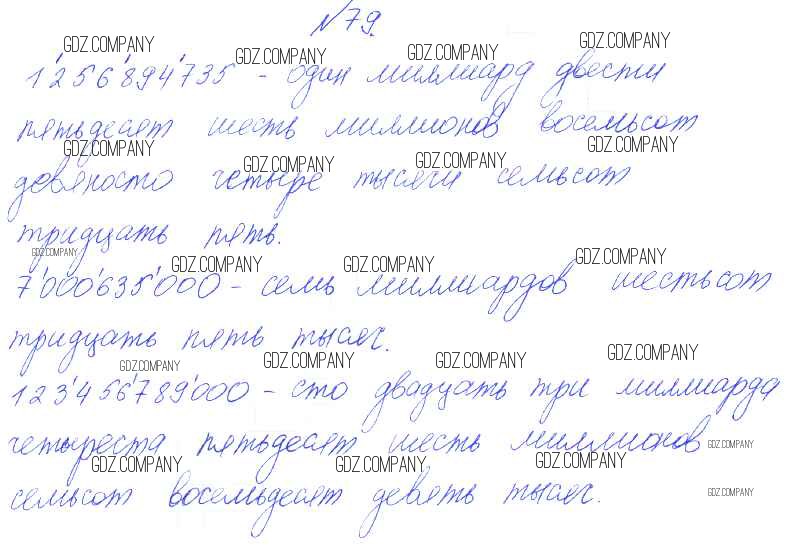 №79.
1'256'894'735 - один миллиард двести
пятьдесят шесть миллионов восемьсот
девяносто четыре тысячи семьсот
тридцать пять.
7'000'635'000 - семь миллиардов шестьсот
тридцать пять тысяч.
123'456'789'000 - сто двадцать три миллиарда
четыреста пятьдесят шесть миллионов
семьсот восемьдесят девять тысяч.
GDZ.COMPANY GDZ.COMPANY GDZ.COMPANY GDZ.COMPANY
GDZ.COMPANY GDZ.COMPANY GDZ.COMPANY GDZ.COMPANY
GDZ.COMPANY GDZ.COMPANY GDZ.COMPANY GDZ.COMPANY
GDZ.COMPANY GDZ.COMPANY GDZ.COMPANY GDZ.COMPANY
GDZ.COMPANY
GDZ.COMPANY GDZ.COMPANY GDZ.COMPANY
GDZ.COMPANY